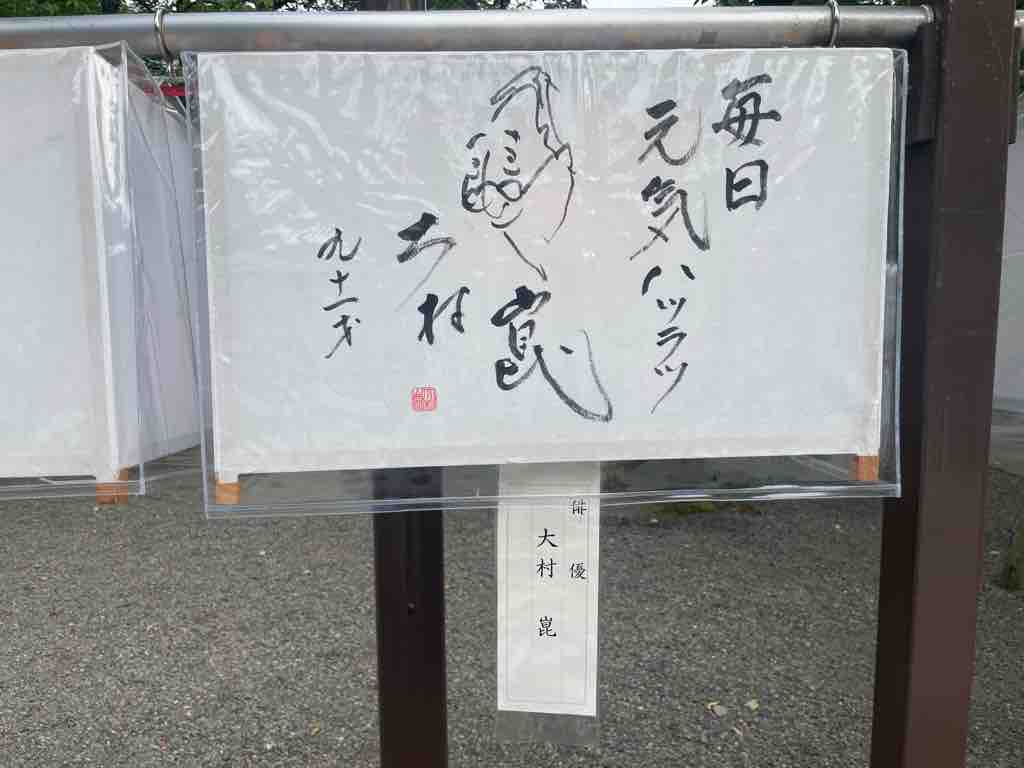 毎日
元気ハツラツ
大村
崑
九十一才
俳優
大村 崑